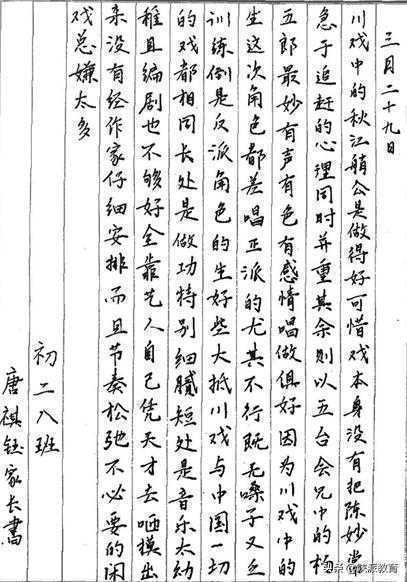 三月二十九日
川戏中的秋江艄公是做得好可惜戏本身没有把陈妙常
急于追赶的心理同时并重其余则以五台会兄中的杨
五郎最妙有声有色有感情唱做俱好因为川戏中的
生这次角色都差唱正派的尤其不行既无嗓子又乏
训练倒是反派角色的生好些大抵川戏与中国一切
的戏都相同长处是做功特别细腻短处是音乐太幼
稚且编剧也不够好全靠艺人自己凭天才去咂摸出
来没有经作家仔细安排而且节奏松弛不必要的闲
戏总嫌太多
初二八班
唐祺钰家长书
头条 @铁派教育